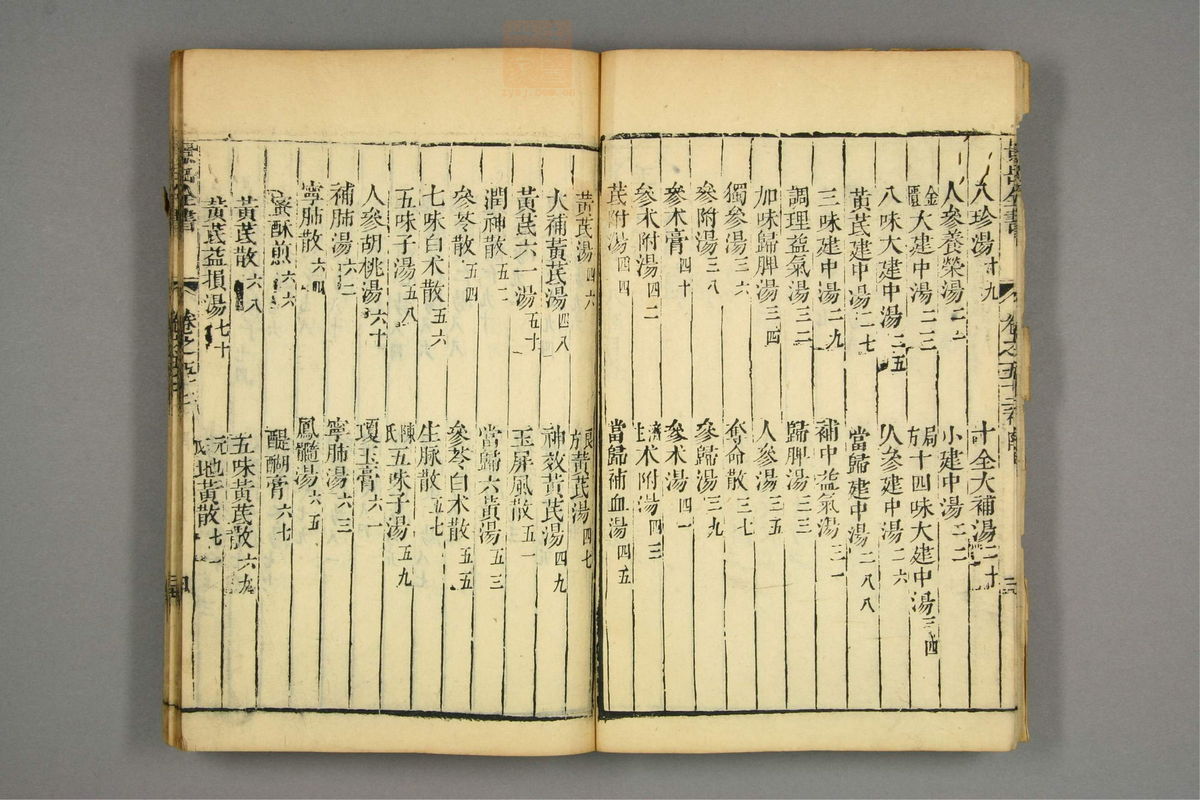 景岳全書
卷之五十三
八珍湯十九
十全大補湯二十
人參養榮湯二一
小建中湯二二
金匱大建中湯二三
局方十四味大建中湯二四
八味大建中湯二五
人參建中湯二六
黃芪建中湯二七
當歸建中湯二八
三味建中湯二九
補中益氣湯三一
調理益氣湯三二
歸脾湯三三
加味歸脾湯三四
人參湯三五
獨參湯三六
奪命散三七
參附湯三八
參歸湯三九
參朮膏四十
參朮湯四一
參朮附湯四二
濟生朮附湯四三
芪附湯四四
當歸補血湯四五
黃芪湯四六
良方黃芪湯四七
大補黃芪湯四八
神效黃芪湯四九
黃芪六一湯五十
玉屏風散五一
潤神散五二
當歸六黃湯五三
參苓散五四
參苓白朮散五五
七味白朮散五六
生脉散五七
五味子湯五八
陳氏五味子湯五九
人參胡桃湯六十
瓊玉膏六一
補肺湯六二
寧肺湯六三
寧肺散六四
鳳髓湯六五
蜜酥煎六六
醍醐膏六七
黃芪散六八
五味黃芪散六九
黃芪益損湯七十
地黃散七一
景岳全書
卷之五十三